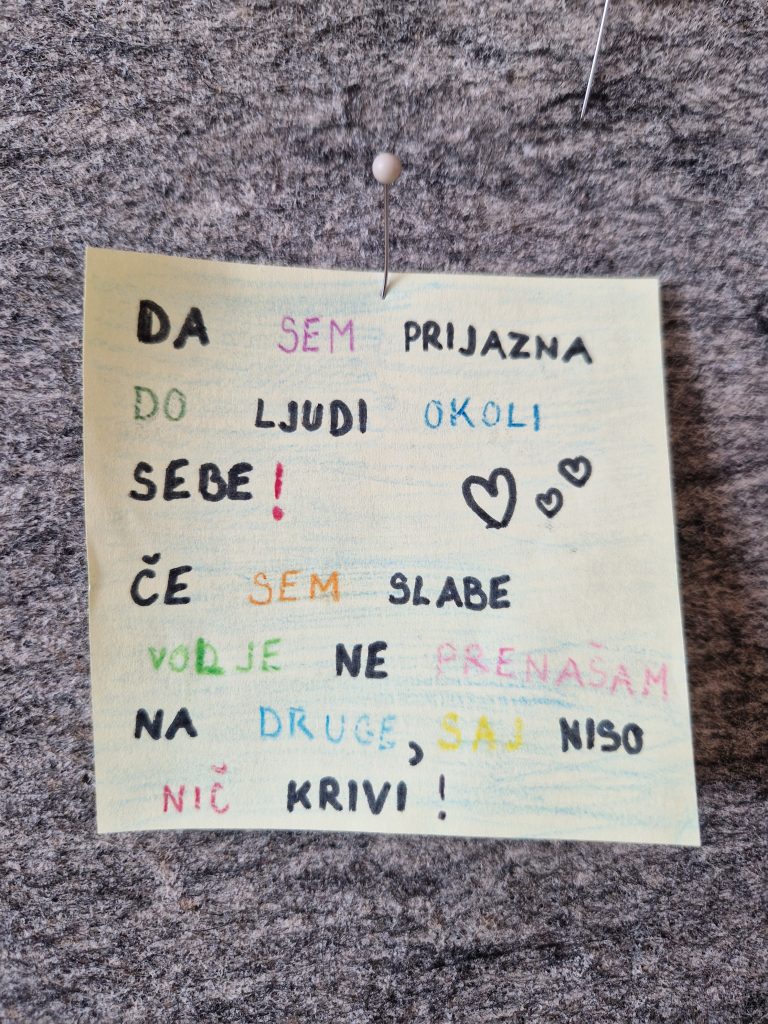 DA SEM PRIJAZNA
DO LJUDI OKOLI
SEBE!
ČE SEM SLABE
VOLJE NE PRENAŠAM
NA DRUGE, SAJ NISO
NIČ KRIVI!